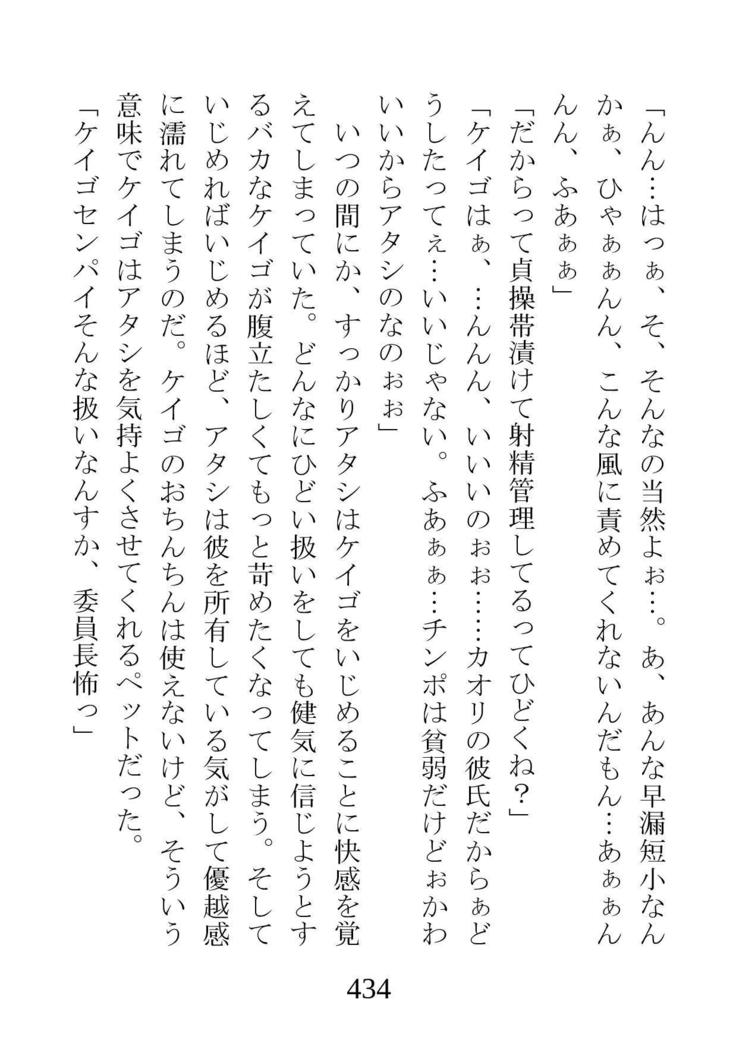 「んん…はつぁ、そ、そんなの当然よぉ…。あ、あんな早漏短小なん
かぁ、ひゃぁぁんん、こんな風に責めてくれないんだもん…あぁぁん
んん、ふあぁぁ」
「だからって貞操帯漬けて射精管理してるってひどくね？」
「ケイゴはぁ、…んんん、いいいのぉぉ……カオリの彼氏だからぁど
うしたってぇ…いいじゃない。ふあぁぁ…チンポは貧弱だけどぉかわ
いいからアタシのなのぉぉ」
　いつの間にか、すっかりアタシはケイゴをいじめることに快感を覚
えてしまっていた。どんなにひどい扱いをしても健気に信じようとす
るバカなケイゴが腹立たしくてもっと苛めたくなってしまう。そして
いじめればいじめるほど、アタシは彼を所有している気がして優越感
に濡れてしまうのだ。ケイゴのおちんちんは使えないけど、そういう
意味でケイゴはアタシを気持よくさせてくれるペットだった。
「ケイゴセンパイそんな扱いなんすか、委員長怖っ」
434